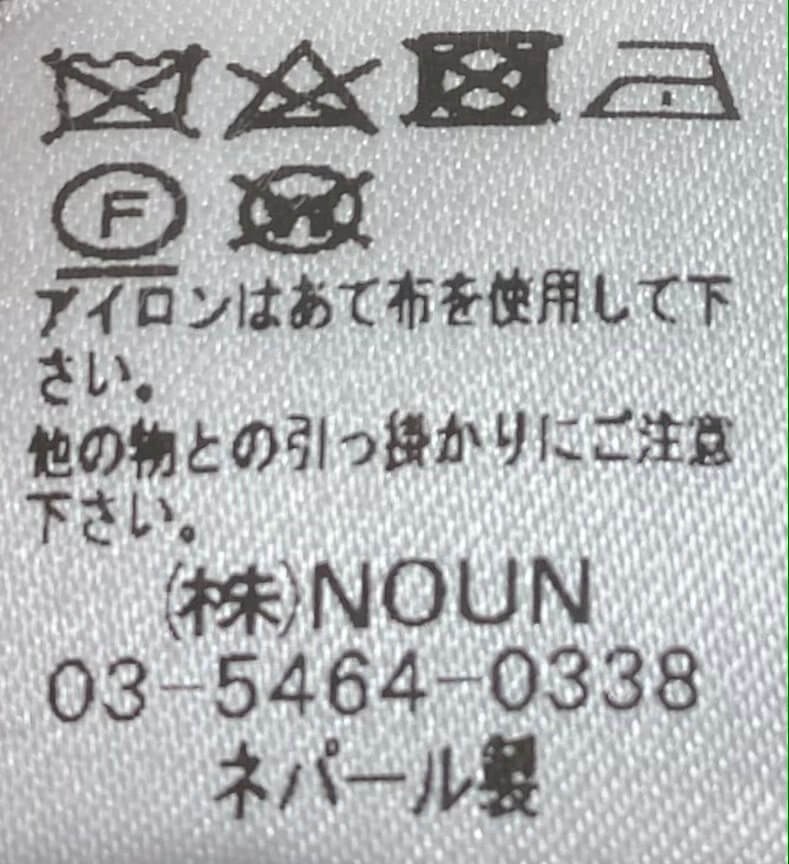 F
W
アイロンはあて布を使用して下
さい。
他の物との引っ掛かりにご注意
下さい。
㈱NOUN
03-5464-0338
ネパール製